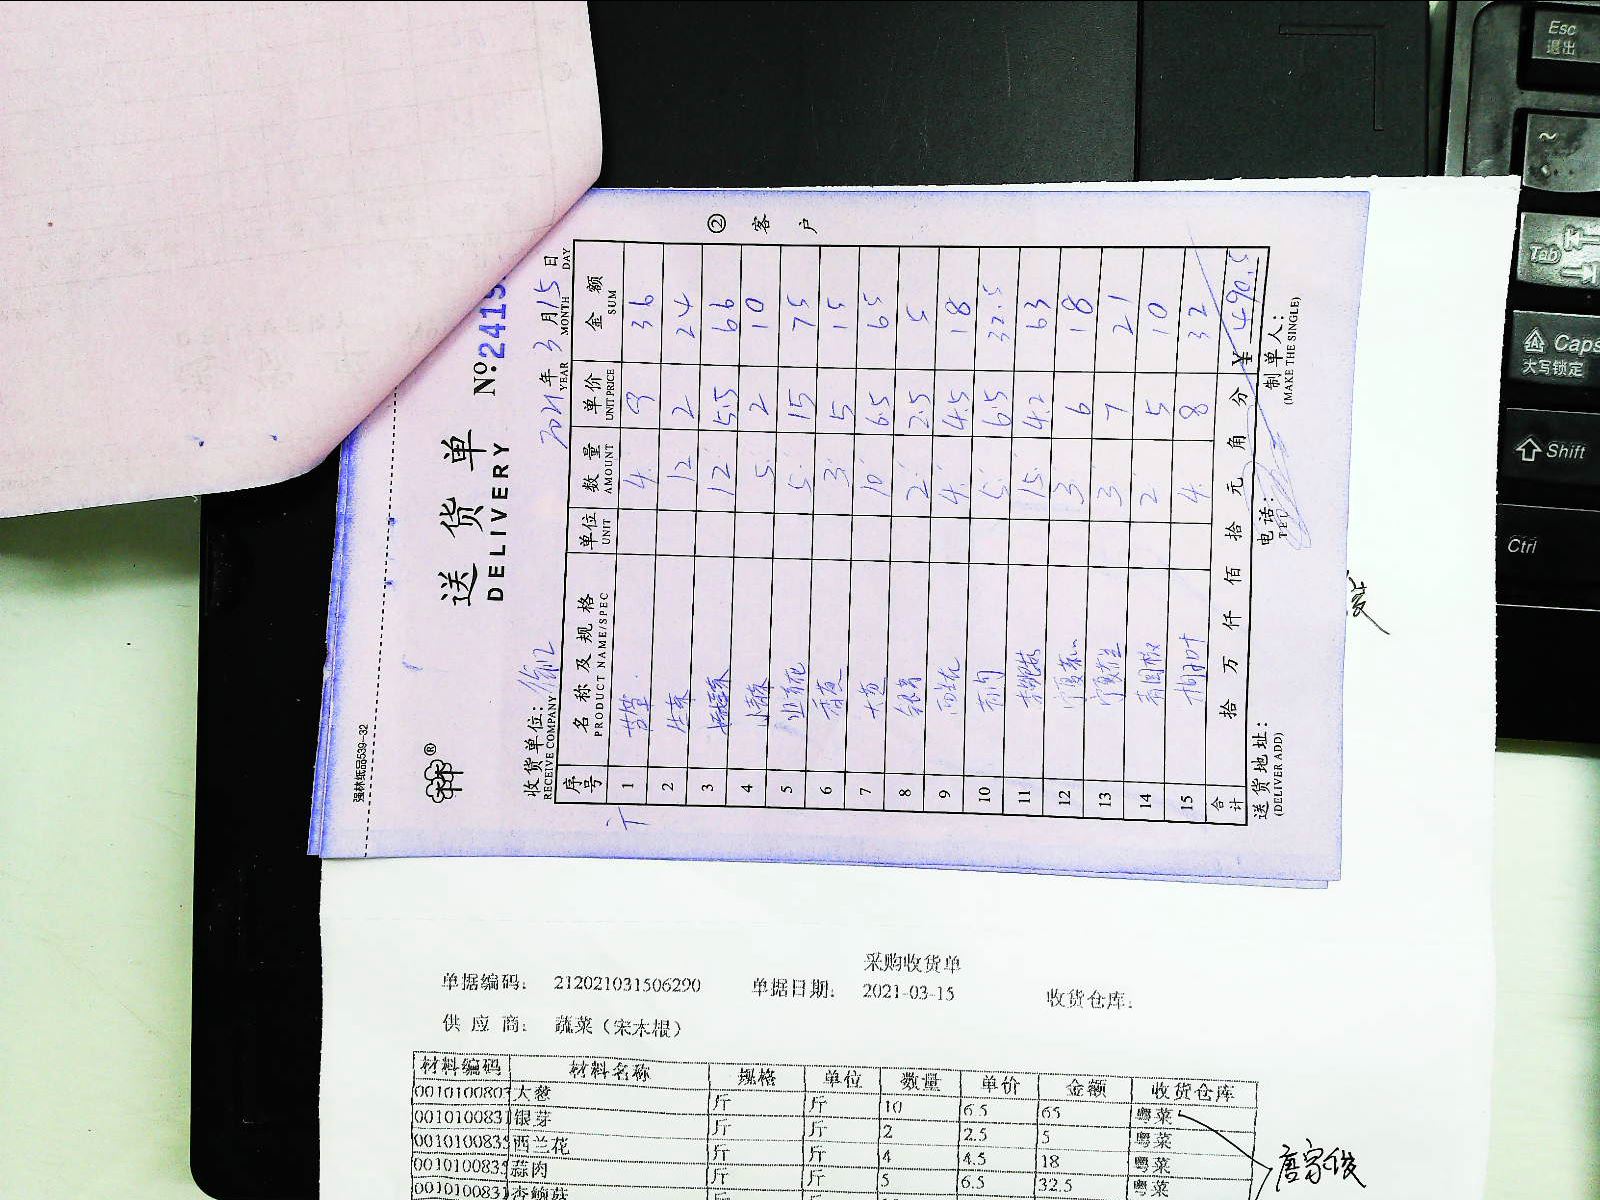 强林纸品539-32
®
送货单
DELIVERY
№:2419
收货单位:
RECEIVE COMPANY
2021年3月15日
YEAR MONTH DAY
② 客户
序号 名称及规格 单位 数量 单价 金额
PRODUCT NAME/SPEC UNIT AMOUNT UNIT PRICE SUM
1 4 9 36
2 生菜 12 2 24
3 12 5.5 66
4 5 2 10
5 5 15 75
6 3 5 15
7 大葱 10 6.5 65
8 银芽 2 2.5 5
9 西兰花 4 4.5 18
10 蒜肉 5 6.5 32.5
11 15 4.2 63
12 3 6 18
13 3 7 21
14 青园椒 2 5 10
15 4 8 32
合计 拾 万 仟 佰 拾 元 角 分 ¥ 490.5
送货地址: 电话: 制单人:
(DELIVER ADD) TEL (MAKE THE SINGLE)
采购收货单
单据编码: 212021031506290 单据日期: 2021-03-15 收货仓库:
供应商: 蔬菜(宋木根)
材料编码 材料名称 规格 单位 数量 单价 金额 收货仓库
0010100803 大葱 斤 斤 10 6.5 65 粤菜
0010100831 银芽 斤 斤 2 2.5 5 粤菜
0010100835 西兰花 斤 斤 4 4.5 18 粤菜
0010100835 蒜肉 斤 斤 5 6.5 32.5 粤菜
0010100831 杏鲍菇 斤
唐家俊
Esc
退出
~
Tab
Caps
大写锁定
Shift
Ctrl